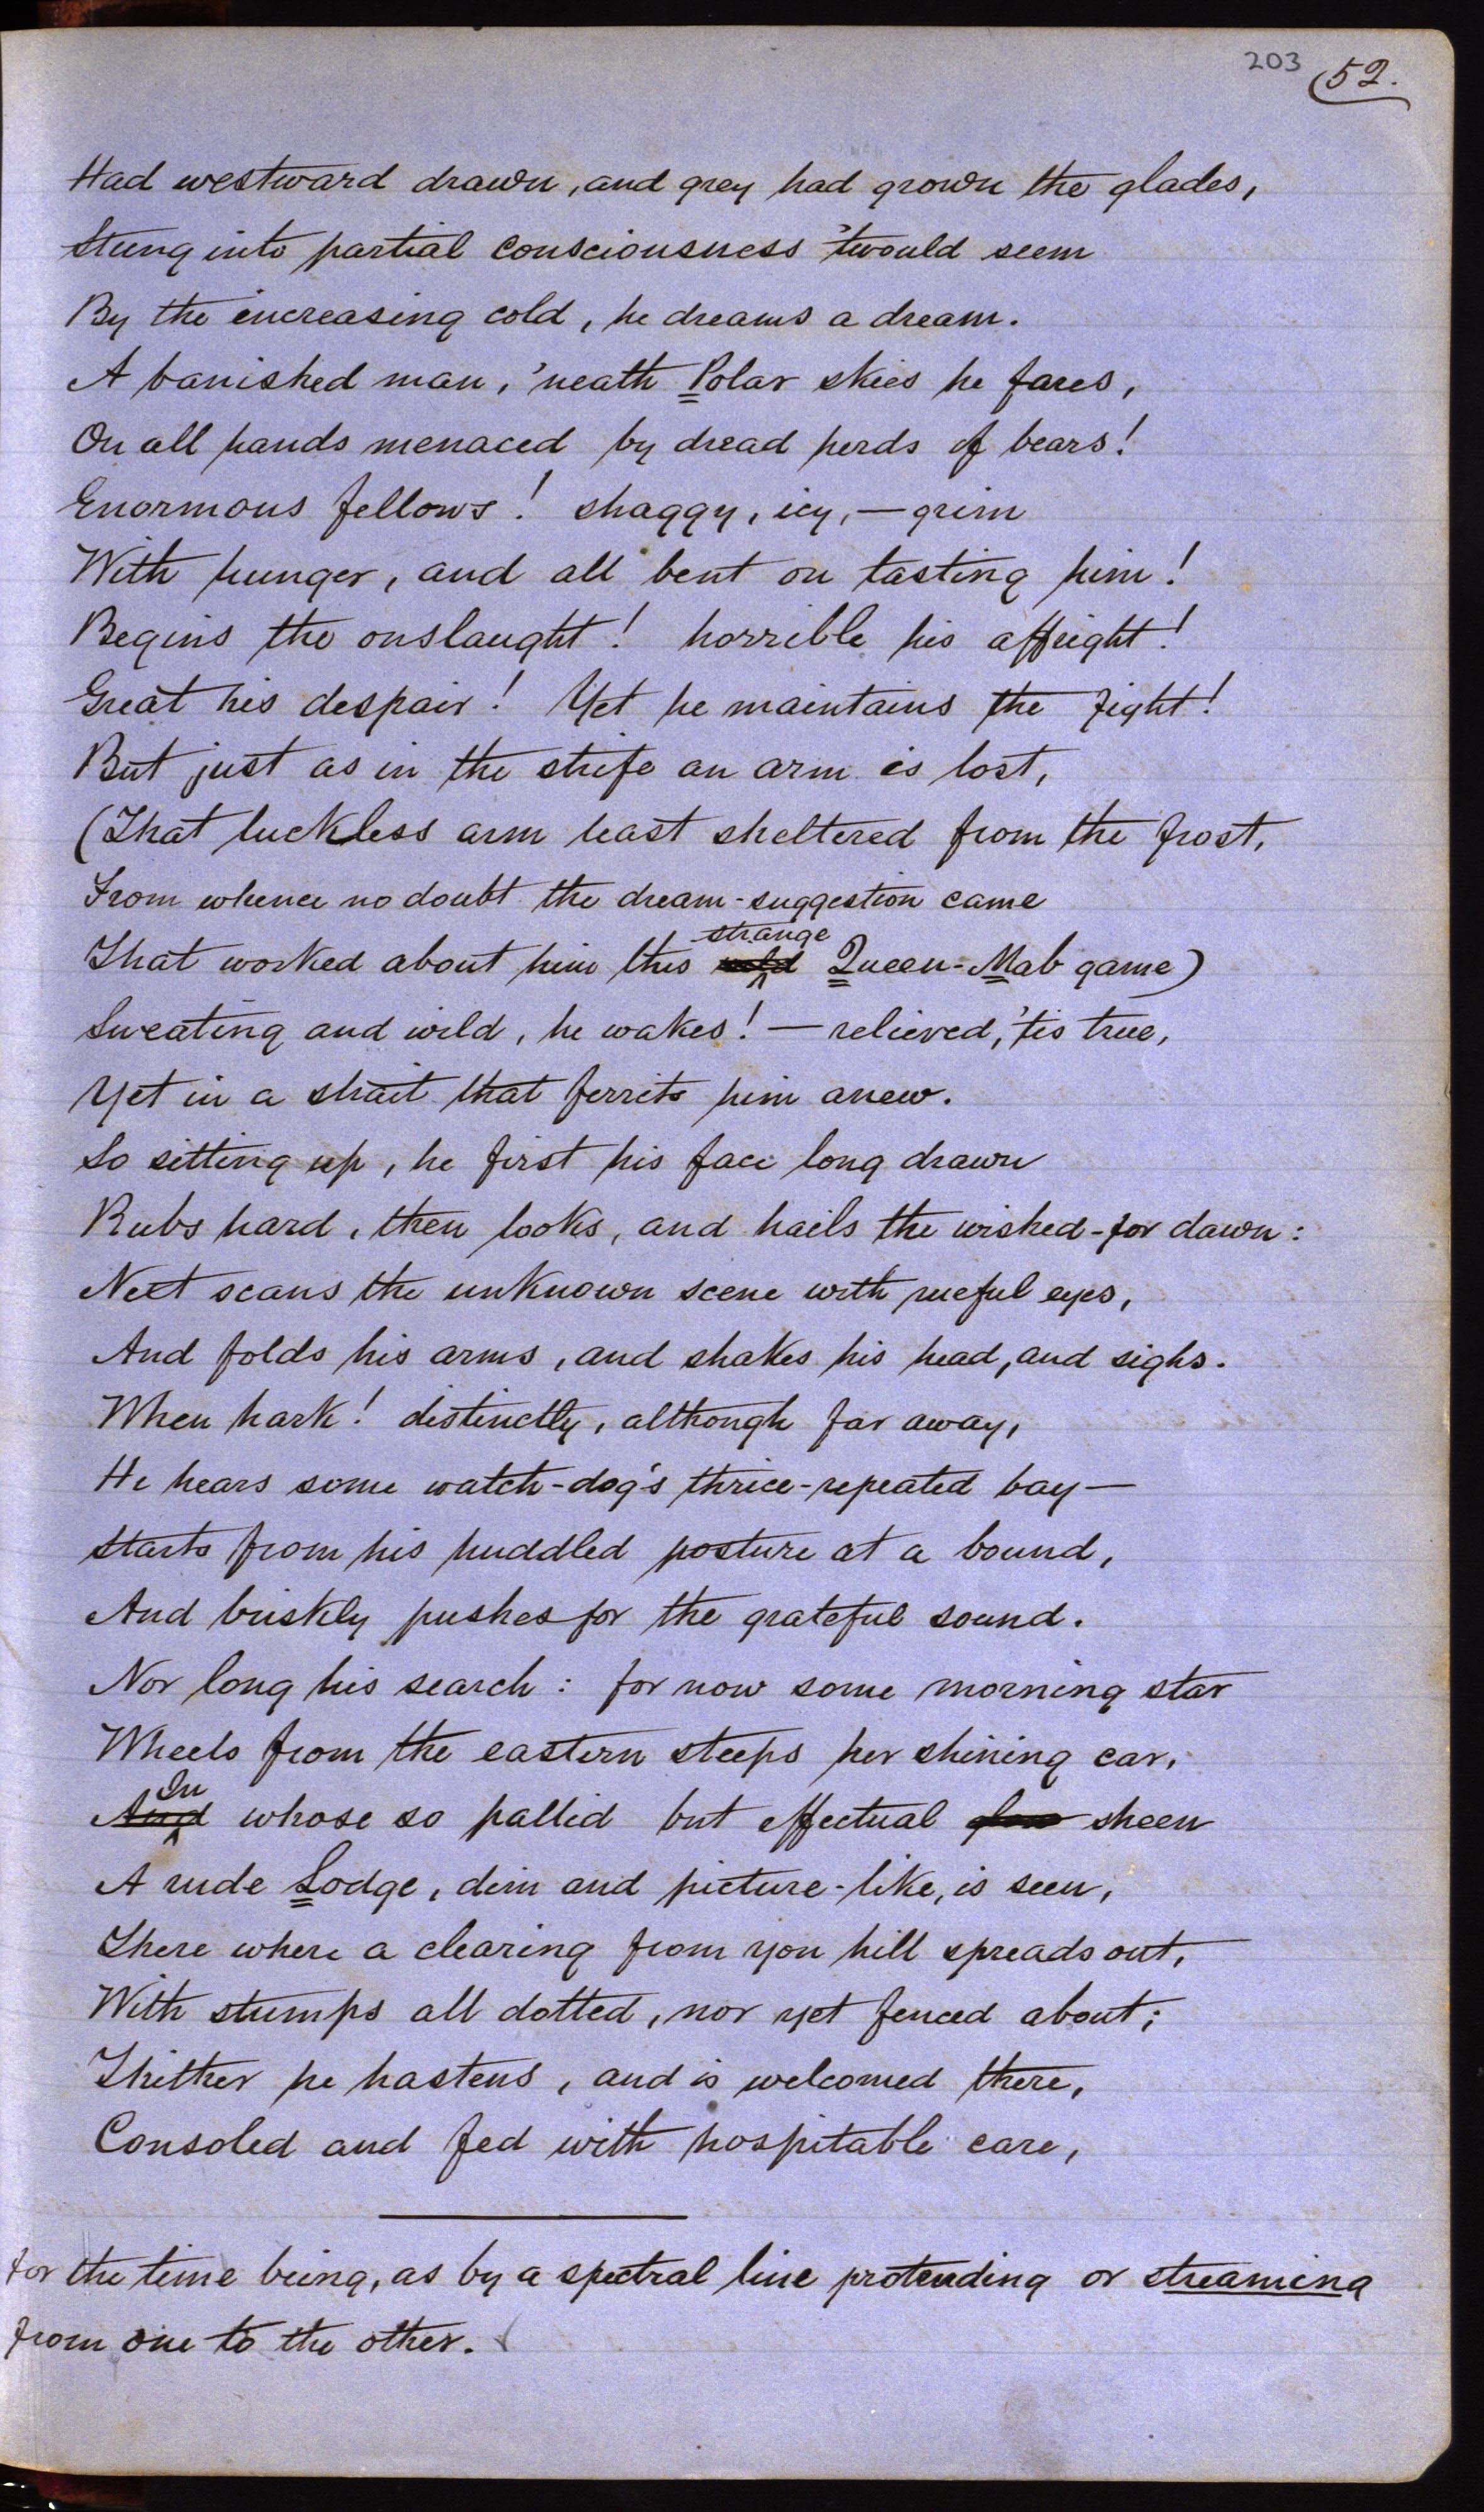 203 52.
Had westward drawn, and grey had grown the glades,
Stung into partial consciousness 'twould seem
By the increasing cold, he dreams a dream.
A banished man, 'neath Polar skies he fares,
On all hands menaced by dread herds of bears!
Enormous fellows! shaggy, icy, — grim
With hunger, and all bent on tasting him!
Begins the onslaught! horrible his affright!
Great his despair! Yet he maintains the fight!
But just as in the strife an arm is lost,
(That luckless arm least sheltered from the frost,
From whence no doubt the dream-suggestion came
strange
That worked about him this wild Queen-Mab game)
Sweating and wild, he wakes! — relieved, 'tis true,
Yet in a strait that ferrits him anew.
So sitting up, he first his face long drawn
Rubs hard, then looks, and hails the wished-for dawn:
Next scans the unknown scene with rueful eyes,
And folds his arms, and shakes his head, and sighs.
When hark! distinctly, although far away,
He hears some watch-dog's thrice-repeated bay —
Starts from his huddled posture at a bound,
And briskly pushes for the grateful sound.
Nor long his search: for now some morning star
Wheels from the eastern steeps her shining car,
In
And whose so pallid but effectual sheen
A rude Lodge, dim and picture-like, is seen,
There where a clearing from yon hill spreads out,
With stumps all dotted, nor yet fenced about;
Thither he hastens, and is welcomed there,
Consoled and fed with hospitable care,
for the time being, as by a spectral line protending or streaming
from one to the other.